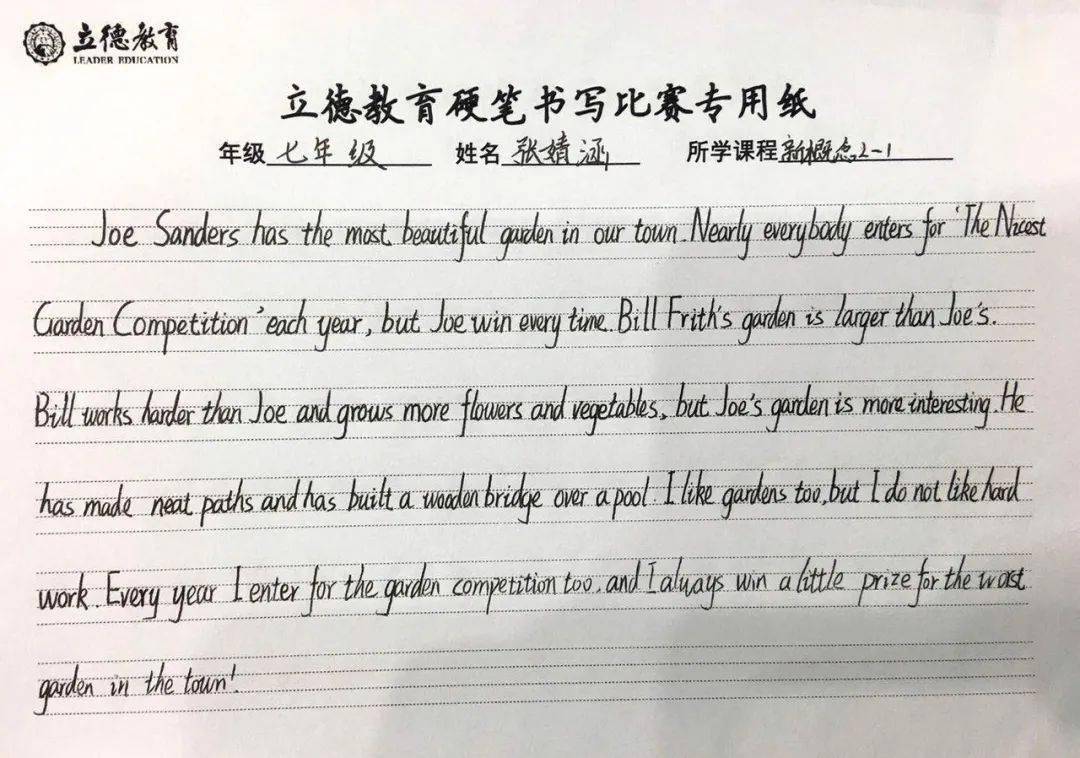 立德教育
LEADER EDUCATION
立德教育硬笔书写比赛专用纸
年级 七年级 姓名 张婧涵 所学课程 新概念2-1
Joe Sanders has the most beautiful garden in our town. Nearly everybody enters for 'The Nicest
Garden Competition' each year, but Joe win every time. Bill Frith's garden is larger than Joe's.
Bill works harder than Joe and grows more flowers and vegetables, but Joe's garden is more interesting. He
has made neat paths and has built a wooden bridge over a pool. I like gardens too, but I do not like hard
work. Every year I enter for the garden competition too, and I always win a little prize for the worst
garden in the town!